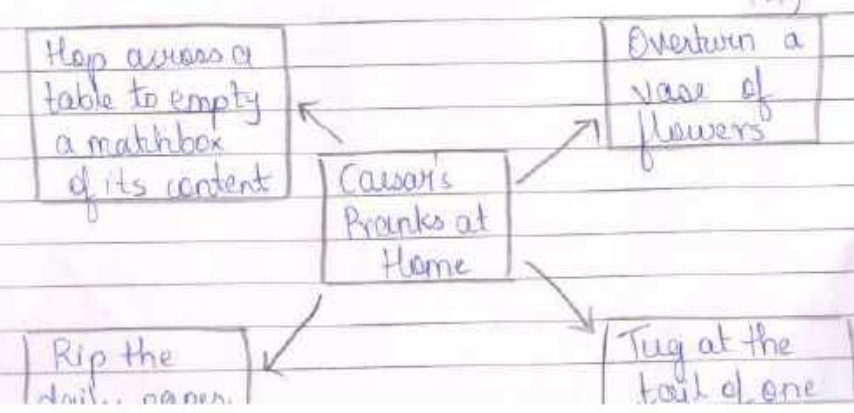 Hop across a
table to empty
a matchbox
of its content
Overturn a
vase of
flowers
Caesar's
Pranks at
Home
Rip the
daily paper
Tug at the
tail of one